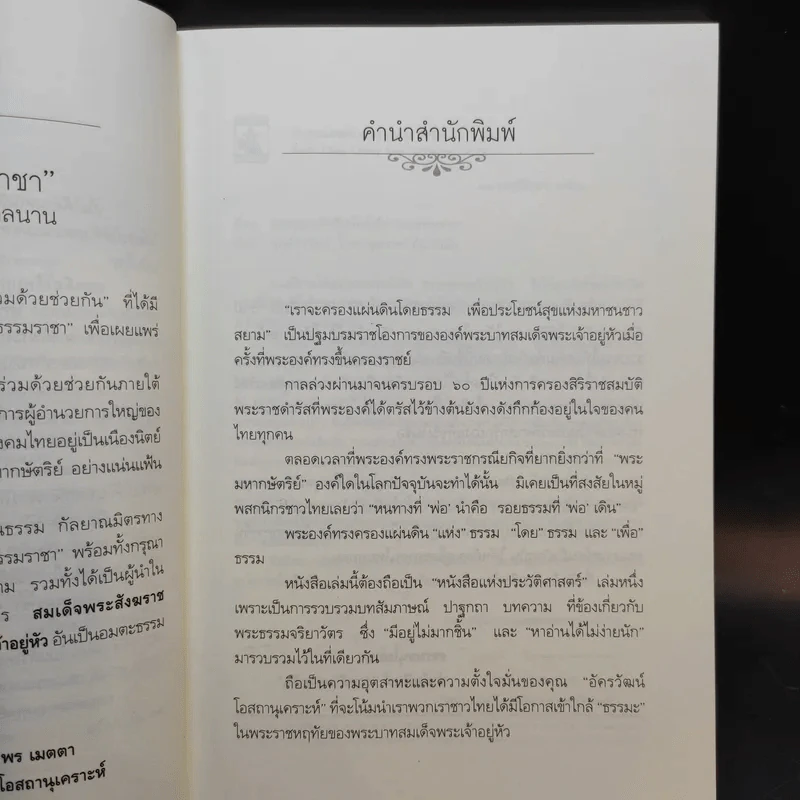 ราชา”
ลนาน
วมด้วยช่วยกัน” ที่ได้มี
ธรรมราชา” เพื่อเผยแพร่
ร่วมด้วยช่วยกันภายใต้
การผู้อำนวยการใหญ่ของ
งคมไทยอยู่เป็นเนืองนิตย์
หากษัตริย์ อย่างแน่นแฟ้น
นธรรม กัลยาณมิตรทาง
รรมราชา” พร้อมทั้งกรุณา
าม รวมทั้งได้เป็นผู้นำใน
ร สมเด็จพระสังฆราช
จ้าอยู่หัว อันเป็นอมตะธรรม
พร เมตตา
โอสถานุเคราะห์
คำนำสำนักพิมพ์
“เราจะครองแผ่นดินโดยธรรม เพื่อประโยชน์สุขแห่งมหาชนชาว
สยาม” เป็นปฐมบรมราชโองการขององค์พระบาทสมเด็จพระเจ้าอยู่หัวเมื่อ
ครั้งที่พระองค์ทรงขึ้นครองราชย์
กาลล่วงผ่านมาจนครบรอบ ๖๐ ปีแห่งการครองสิริราชสมบัติ
พระราชดำรัสที่พระองค์ได้ตรัสไว้ข้างต้นยังคงดังกึกก้องอยู่ในใจของคน
ไทยทุกคน
ตลอดเวลาที่พระองค์ทรงพระราชกรณียกิจที่ยากยิ่งกว่าที่ “พระ
มหากษัตริย์” องค์ใดในโลกปัจจุบันจะทำได้นั้น มิเคยเป็นที่สงสัยในหมู่
พสกนิกรชาวไทยเลยว่า “หนทางที่ ‘พ่อ’ นำคือ รอยธรรมที่ ‘พ่อ’ เดิน”
พระองค์ทรงครองแผ่นดิน “แห่ง” ธรรม “โดย” ธรรม และ “เพื่อ”
ธรรม
หนังสือเล่มนี้ต้องถือเป็น “หนังสือแห่งประวัติศาสตร์” เล่มหนึ่ง
เพราะเป็นการรวบรวมบทสัมภาษณ์ ปาฐกถา บทความ ที่ข้องเกี่ยวกับ
พระธรรมจริยาวัตร ซึ่ง “มีอยู่ไม่มากชิ้น” และ “หาอ่านได้ไม่ง่ายนัก”
มารวบรวมไว้ในที่เดียวกัน
ถือเป็นความอุตสาหะและความตั้งใจมั่นของคุณ “อัครวัฒน์
โอสถานุเคราะห์” ที่จะโน้มนำเราพวกเราชาวไทยได้มีโอกาสเข้าใกล้ “ธรรมะ”
ในพระราชหฤทัยของพระบาทสมเด็จพระเจ้าอยู่หัว